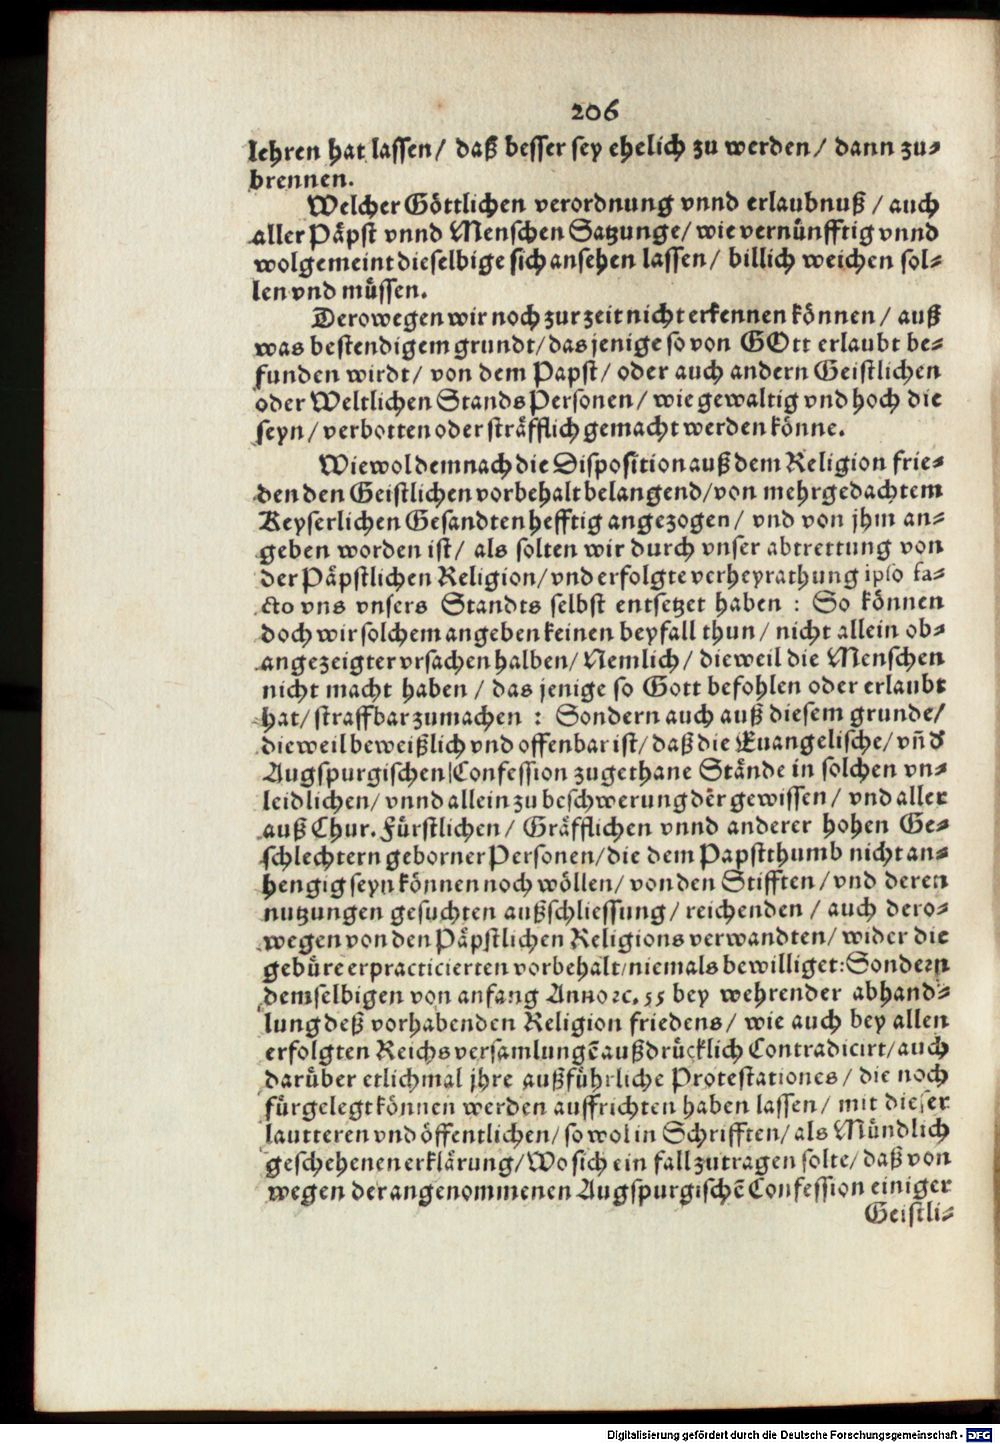 206
lehren hat lassen/ daß besser sey ehelich zu werden/ dann zu-
brennen.
Welcher Göttlichen verordnung vnnd erlaubnuß/ auch
aller Päpst vnnd Menschen Satzunge/ wie vernünfftig vnnd
wolgemeint dieselbige sich ansehen lassen/ billich weichen sol-
len vnd müssen.
Derowegen wir noch zur zeit nicht erkennen können/ auß
was bestendigem grundt/ das jenige so von GOtt erlaubt be-
funden wirdt/ von dem Papst/ oder auch andern Geistlichen
oder Weltlichen Stands Personen/ wie gewaltig vnd hoch die
seyn/ verbotten oder sträfflich gemacht werden könne.
Wiewol demnach die Disposition auß dem Religion frie-
den den Geistlichen vorbehalt belangend/ von mehrgedachtem
Keyserlichen Gesandten hefftig angezogen/ vnd von jhm an-
geben worden ist/ als solten wir durch vnser abtrettung von
der Päpstlichen Religion/ vnd erfolgte verheyrathung ipso fa-
cto vns vnsers Standts selbst entsetzet haben : So können
doch wir solchem angeben keinen beyfall thun/ nicht allein ob-
angezeigter vrsachen halben/ Nemlich/ dieweil die Menschen
nicht macht haben/ das jenige so Gott befohlen oder erlaubt
hat/ straffbar zumachen : Sondern auch auß diesem grunde/
dieweil beweißlich vnd offenbar ist/ daß die Euangelische/ vñ d'
Augspurgischen Confession zugethane Stände in solchen vn-
leidlichen/ vnnd allein zu beschwerung der gewissen/ vnd aller
auß Chur. Fürstlichen/ Gräfflichen vnnd anderer hohen Ge-
schlechtern geborner Personen/ die dem Papstthumb nicht an-
hengig seyn können noch wöllen/ von den Stifften/ vnd deren
nutzungen gesuchten außschliessung/ reichenden/ auch dero-
wegen von den Päpstlichen Religions verwandten/ wider die
gebüre erpracticierten vorbehalt/ niemals bewilliget: Sondern
demselbigen von anfang Anno ꝛc. 55 bey wehrender abhand-
lung deß vorhabenden Religion friedens/ wie auch bey allen
erfolgten Reichs versamlungẽ außdrücklich Contradicirt/ auch
darüber etlichmal jhre außführliche Protestationes/ die noch
fürgelegt können werden auffrichten haben lassen/ mit dieser
lautteren vnd öffentlichen/ so wol in Schrifften/ als Mündlich
geschehenen erklärung/ Wo sich ein fall zutragen solte/ daß von
wegen der angenommenen Augspurgischẽ Confession einiger
Geistli-
Digitalisierung gefördert durch die Deutsche Forschungsgemeinschaft - DFG